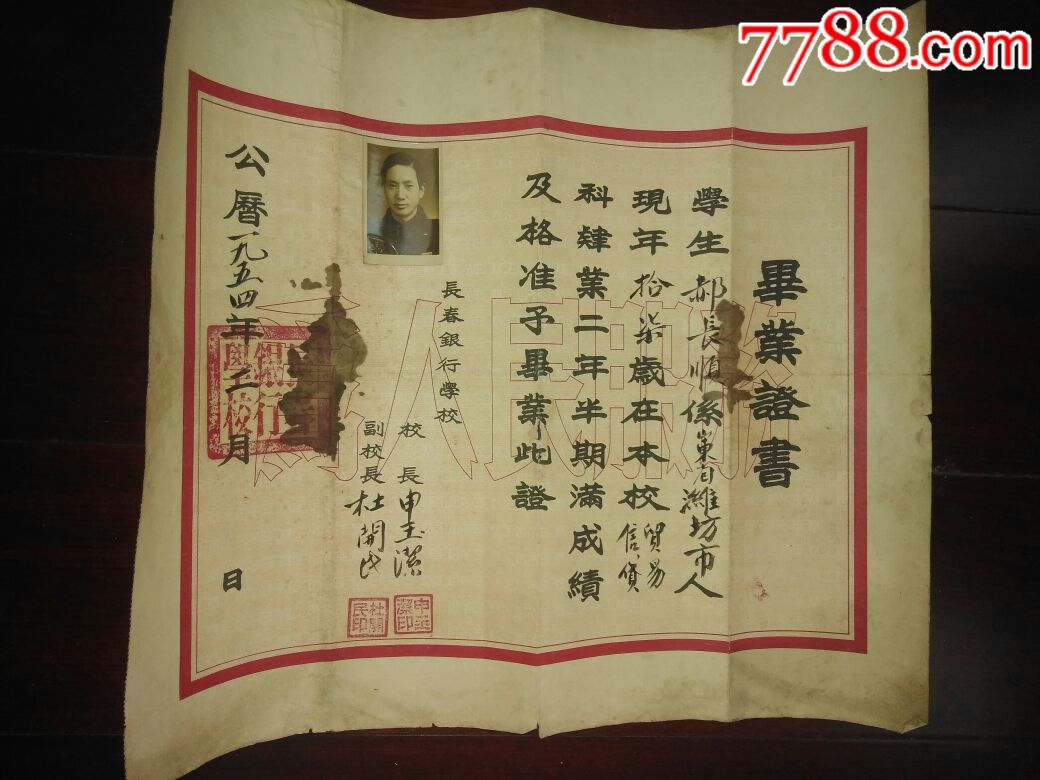 7788.com
畢業證書
學生郝長順係山東省濰坊市人
現年拾柒歲在本校貿易信貸
科肄業二年半期滿成績
及格准予畢業此證
長春銀行學校
校長申玉潔
副校長杜開民
公曆一九五四年 月 日
為人民服務
杜開民印